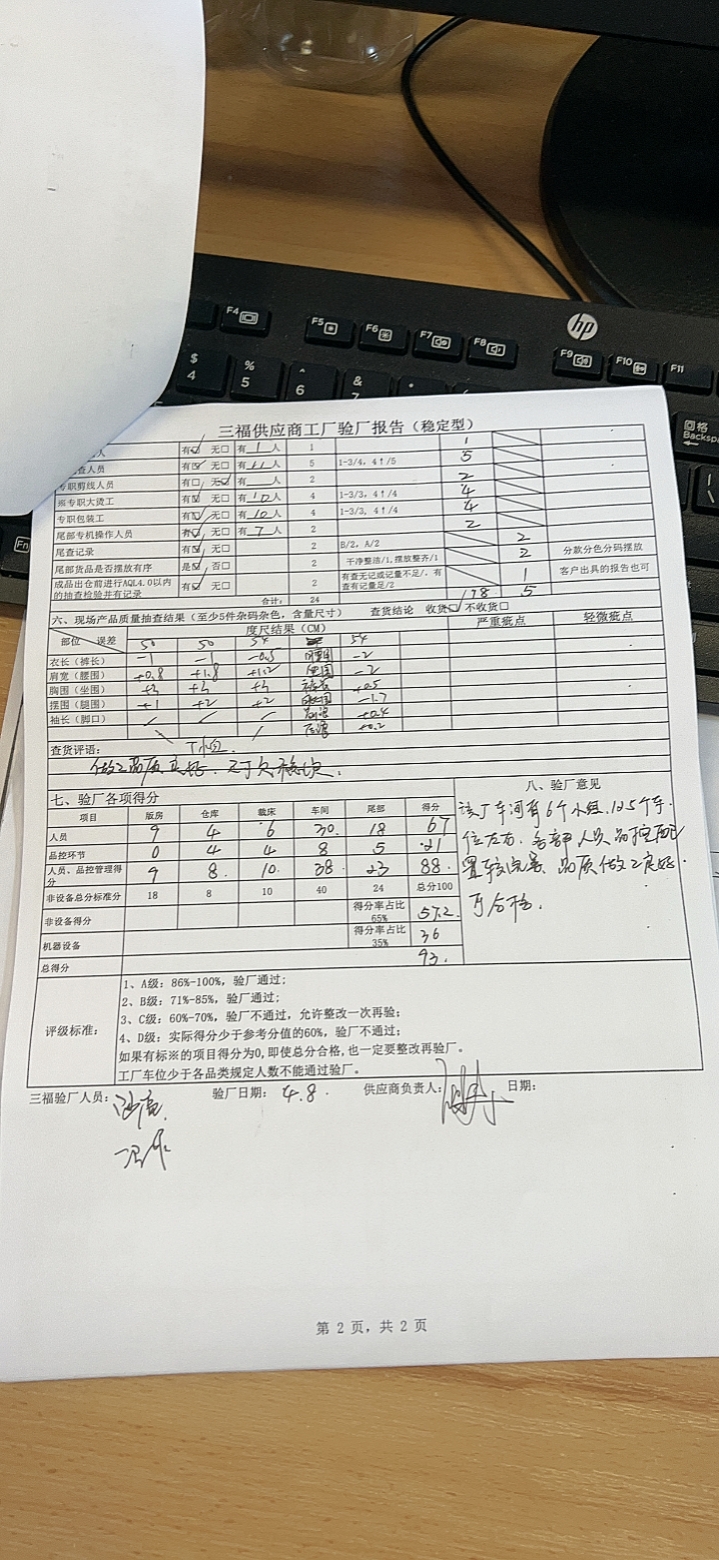 F4
F5
F6
F7
F8
hp
F9
F10
F11
$
4
%
5
^
6
&
7
*
回格
Backsp
Fn
三福供应商工厂验厂报告（稳定型）
人 有☑ 无□ 有 1 人 1 1
查人员 有☑ 无□ 有 11 人 5 1-3/4, 4↑/5 5
专职剪线人员 有□ 无☑ 有 人 2 2
班专职大烫工 有☑ 无□ 有 10 人 4 1-3/3, 4↑/4 4
专职包装工 有☑ 无□ 有 10 人 4 1-3/3, 4↑/4 4
尾部专机操作人员 有☑ 无□ 有 7 人 2 2
尾查记录 有☑ 无□ 2 B/2, A/2 2
尾部货品是否摆放有序 是☑ 否□ 2 干净整洁/1,摆放整齐/1 2 分款分色分码摆放
成品出仓前进行AQL4.0以内的抽查检验并有记录 有☑ 无□ 2 有查无记或记量不足/, 有查有记量足/2 1 客户出具的报告也可
合计: 24 18 5
六、现场产品质量抽查结果（至少5件杂码杂色，含量尺寸） 查货结论 收货☑ 不收货□
部位 误差 度尺结果（CM） 严重疵点 轻微疵点
50 50 54 54
衣长（裤长） -1 -1 -0.5 -2
肩宽（腰围） +0.8 +1.8 +1.2 -2
胸围（坐围） +3 +3 +3 +0.5
摆围（腿围） +1 +2 +2 -1.7
袖长（脚口） +0.4
+0.2
查货评语： T恤
做工品质
七、验厂各项得分
项目 版房 仓库 裁床 车间 尾部 得分
人员 9 4 6 30. 18 67
品控环节 0 4 4 8 5 21
人员、品控管理得分 9 8. 10. 38. 23 88.
非设备总分标准分 18 8 10 40 24 总分100
非设备得分 得分率占比65% 57.2.
机器设备 得分率占比35% 36
总得分 93.
八、验厂意见
该厂车间有6个小组, 125个车
位左右. 各部人员品控配
置较完善、品质做工良好.
可合格.
评级标准：
1、A级：86%-100%，验厂通过；
2、B级：71%-85%，验厂通过；
3、C级：60%-70%，验厂不通过，允许整改一次再验；
4、D级：实际得分少于参考分值的60%，验厂不通过；
如果有标※的项目得分为0,即使总分合格,也一定要整改再验厂。
工厂车位少于各品类规定人数不能通过验厂。
三福验厂人员： 验厂日期： 4.8. 供应商负责人： 日期：
第 2 页，共 2 页